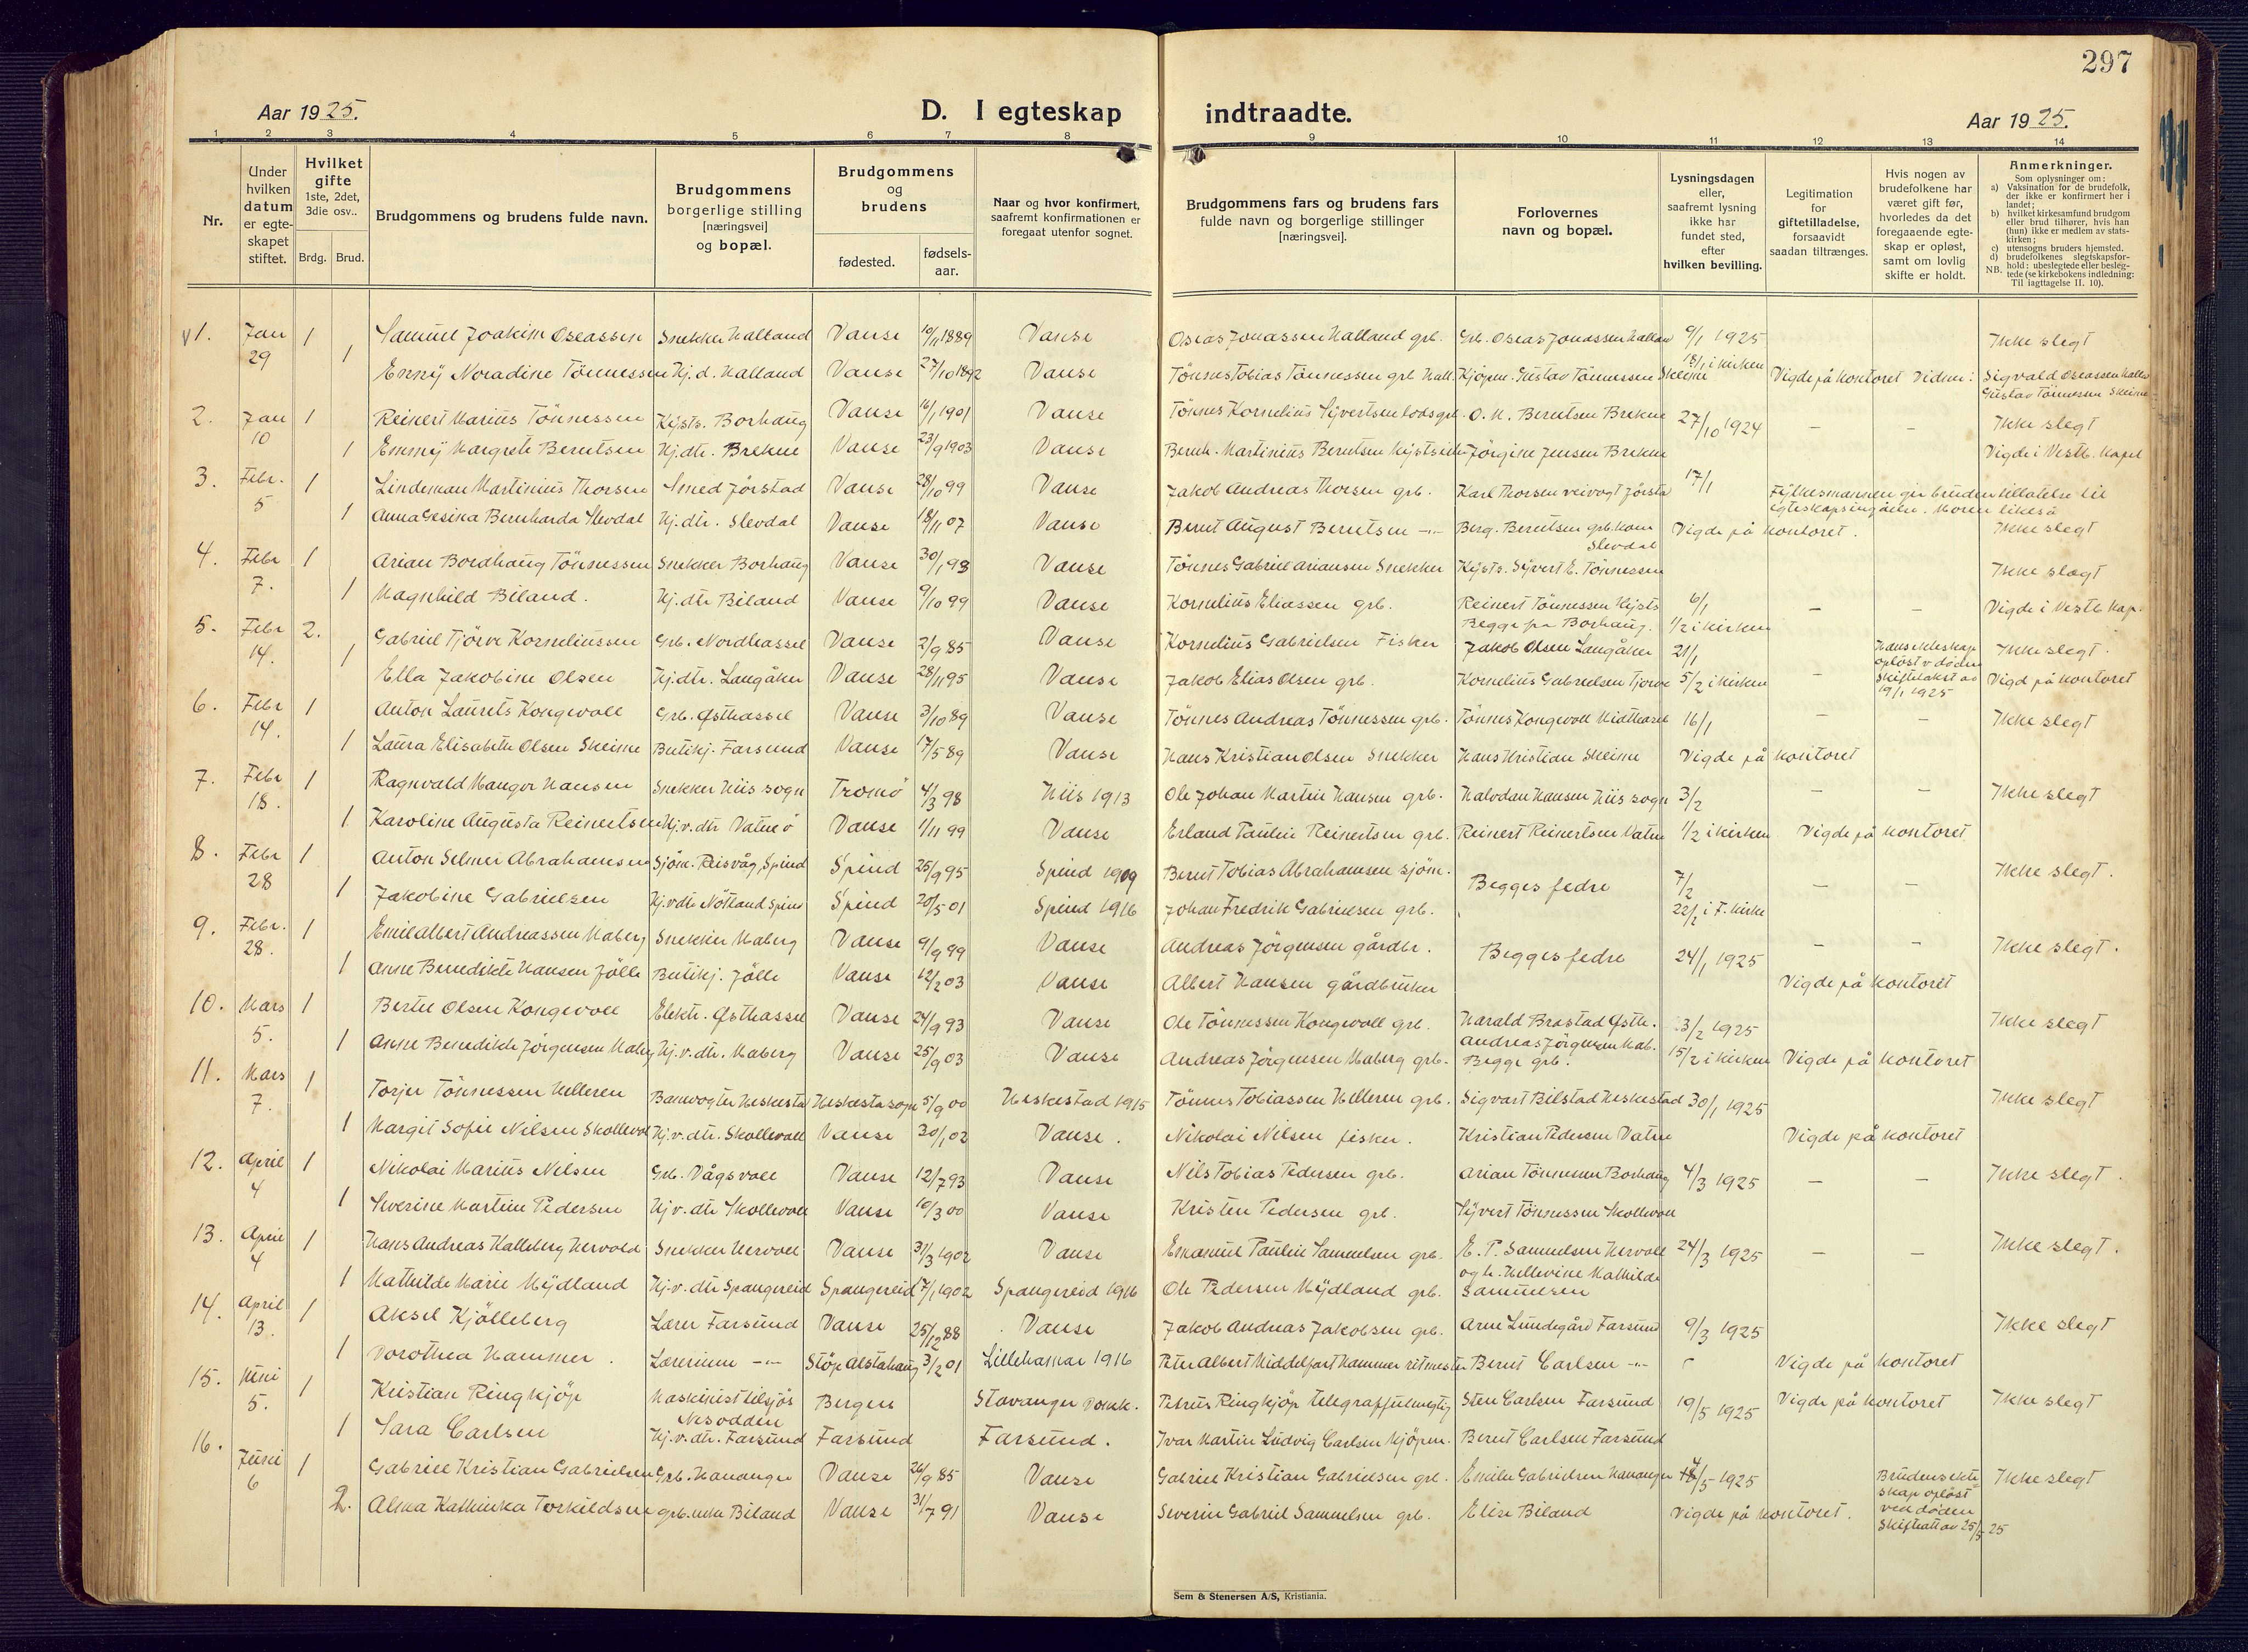 297
Aar 1925.
D. I egteskap indtraadte.
Aar 1925.
1 2 3 4 5 6 7 8 9 10 11 12 13 14
Nr.
Under
hvilken
datum
er egte-
skapet
stiftet.
Hvilket
gifte
1ste, 2det,
3die osv..
Brdg. Brud.
Brudgommens og brudens fulde navn.
Brudgommens
borgerlige stilling
[næringsvei]
og bopæl.
Brudgommens
og
brudens
fødested.
fødsels-
aar.
Naar og hvor konfirmert,
saafremt konfirmationen er
foregaat utenfor sognet.
Brudgommens fars og brudens fars
fulde navn og borgerlige stillinger
[næringsvei].
Forlovernes
navn og bopæl.
Lysningsdagen
eller,
saafremt lysning
ikke har
fundet sted,
efter
hvilken bevilling.
Legitimation
for
giftetilladelse,
forsaavidt
saadan tiltrænges.
Hvis nogen av
brudefolkene har
været gift før,
hvorledes da det
foregaaende egte-
skap er opløst,
samt om lovlig
skifte er holdt.
Anmerkninger.
Som oplysninger om:
a) Vaksination for de brudefolk,
der ikke er konfirmert her i
landet;
b) hvilket kirkesamfund brudgom
eller brud tilhører, hvis han
(hun) ikke er medlem av stats-
kirken;
c) utensogns bruders hjemsted.
d) brudefolkenes slegtskapsfor-
hold: ubeslegtede eller besleg-
NB. tede (se kirkebokens indledning:
Til iagttagelse II. 10).
1. Jan 29 1 Samuel Joakim Oseassen Snekker Halland Vanse 10/11 1889 Vanse Oseas Jonassen Halland grb. Grb. Oseas Jonassen Halland 9/1 1925 Ikke slegt
1 Enny Noradine Tönnessen Hj.d. Halland Vanse 27/10 1892 Vanse Tönnes Tobias Tönnessen grb. Hall. Kjöpm. Gustav Tönnessen Skeime 18/1 i kirken Vigde på kontoret Vidner: Sigvald Oseassen Halland
Gustav Tönnessen Skeime
2. Jan 10 1 Reinert Marius Tönnessen Kysts. Borhaug Vanse 16/1 1901 Vanse Tönnes Kornelius Syvertsen lods grb. O. M. Berntsen Brekne 27/10 1924 – – Ikke slegt
1 Emmy Margrete Berntsen Hj.dtr. Brekne Vanse 23/9 1903 Vanse Bernh. Martinius Berntsen Kystseiler Jörgine Jensen Brekne Vigde i Vestb. Kapel
3. Febr. 5 1 Lindeman Martinius Thorsen Smed Jörstad Vanse 28/10 99 Vanse Jakob Andreas Thorsen grb. Karl Thorsen veivogt Jörstad 17/1 Fylkesmannen gir bruden tillatelse til
egteskapsinngåelse. Moren likeså
1 Anna Gesina Bernharda Slevdal Hj.dtr. Slevdal Vanse 18/11 07 Vanse Bernt August Berntsen -"- Berg. Berntsen grb. Kom
Slevdal Vigde på kontoret. Ikke slegt
4. Febr 7. 1 Arian Bordhaug Tönnessen Snekker Borhaug Vanse 30/1 93 Vanse Tönnes Gabriel Ariansen Snekker Kysts. Syvert E. Tönnessen Ikke slægt
1 Magnhild Biland. Hj.dtr Biland Vanse 9/10 99 Vanse Kornelius Eliassen grb. Reinert Tönnessen Kysts
Begge fra Borhaug. 6/1
1/2 i kirken – – Vigde i Vestb. Kap.
5. Febr 14. 2. Gabriel Tjörve Korneliussen Grb. Nordhassel Vanse 2/9 85 Vanse Kornelius Gabrielsen Fisker Jakob Olsen Langåker 21/1 Hans ekteskap
opløst v døden
Skifteakst av
19/1 1925 Ikke slegt.
1 Ella Jakobine Olsen Hj.dtr. Langåker Vanse 28/11 95 Vanse Jakob Elias Olsen grb. Kornelius Gabrielsen Tjorve 5/2 i kirken – Vigd på kontoret
6. Febr 14. 1 Anton Laurets Kongevoll Grb. Østhassel Vanse 3/10 89 Vanse Tönnes Andreas Tönnessen grb. Tönnes Kongevoll Midthassel 16/1 – – Ikke slegt
1 Laura Elisabeth Olsen Skeime Butikj. Farsund Vanse 17/5 89 Vanse Hans Kristian Olsen Snekker Hans Kristian Skeime Vigde på kontoret
7. Febr 18. 1 Ragnvald Mangor Hansen Snekker Hiis sogn Tromö 4/3 98 Hiis 1913 Ole Johan Martin Hansen grb. Halvdan Hansen Hiis sogn 3/2 – – Ikke slegt
1 Karoline Augusta Reinertsen Hj.v.dtr Vatneö Vanse 1/11 99 Vanse Erland Paulin Reinertsen grb. Reinert Reinertsen Vatne 1/2 i kirken Vigde på kontoret.
8. Febr 28 1 Anton Selmer Abrahamsen Sjöm. Reisvåg, Spind Spind 25/9 95 Spind 1909 Bernt Tobias Abrahamsen sjöm. Begges fedre 7/2 – – Ikke slegt.
1 Jakobine Gabrielsen Hj.v.dtr Nötland Spind Spind 20/5 01 Spind 1916 Johan Fredrik Gabrielsen grb. 22/2 i F. kirke
9. Febr. 28. 1 Emil Albert Andreassen Maberg Snekker Maberg Vanse 9/9 99 Vanse Andreas Jörgensen gårdbr. Begges fedre 24/1 1925 – – Ikke slegt.
1 Anne Benedikte Hansen Jölle Butikj. Jölle Vanse 12/2 03 Vanse Albert Hansen gårdbruker Vigde på kontoret
10. Mars 5. 1 Bertel Olsen Kongevoll Elektr. Østhassel Vanse 24/9 93 Vanse Ole Tönnessen Kongevoll grb. Harald Brastad Østh. 3/2 1925 Ikke slegt
1 Anne Benedikte Jörgensen Maberg Hj.v.dtr. Maberg Vanse 25/9 03 Vanse Andreas Jörgensen Maberg grb. Andreas Jörgensen Mab.
Begge grb. 15/2 i kirken Vigde på kontoret
11. Mars 7. 1 Torjer Tönnessen Helleren Banevogter Heskestad Heskesta sogn 5/9 00 Heskestad 1915 Tönnes Tobiassen Helleren grb. Sigvart Bilstad Heskestad 30/1 1925 Ikke slegt
1 Margit Sofie Nilsen Skollevoll Hj.v.dtr. Skollevoll Vanse 30/1 02 Vanse. Nikolai Nilsen fisker. Kristian Pedersen Vatne Vigde på kontoret
12. April 4 1 Nikolai Marius Nilsen Grb. Vågsvoll Vanse 12/7 93 Vanse Nils Tobias Pedersen grb. Arian Tönnessen Borhaug 4/3 1925 – – Ikke slegt.
1 Severine Martine Pedersen Hj.v.dtr Skollevoll Vanse 10/3 00 Vanse Kristen Pedersen grb. Syvert Tönnessen Skollevoll
13. April 4 1 Hans Andreas Kalleberg Hervold Snekker Hervoll Vanse 31/3 1902 Vanse Emanuel Paulin Samuelsen grb. E. P. Samuelsen Hervoll 24/3 1925 – – Ikke slegt.
1 Mathilde Marie Mydland Hj.v.dtr Spangereid Spangereid 17/1 1902 Spangereid 1916 Ole Pedersen Mydland grb. og h. Hellevine Mathilde
Samuelsen
14. April 13. 1 Aksel Kjölleberg Lærer Farsund Vanse 25/12 88 Vanse Jakob Andreas Jakobsen grb. Arne Lundegård Farsund 9/3 1925 Ikke slegt
1 Dorothea Hammer. Lærerinne -"- Stöp Alstahaug 3/2 01 Lillehamar 1916 Peter Albert Middelfart Hammer ritmester Bernt Carlsen -"- Vigde på kontoret
15. Juni 5. 1 Kristian Ringkjöp Maskinist tilsjös
Nesodden Bergen Stavanger Domk. Petrus Ringkjöp telegraffulmegtig Sten Carlsen Farsund 19/5 1925 Vigde på kontoret Ikke slegt
1 Sara Carlsen Hj.v.dtr. Farsund Farsund Farsund. Ivar Martin Ludvig Carlsen Kjöpm. Bernt Carlsen Farsund
16. Juni 6 1 Gabriel Kristian Gabrielsen Grb. Hananger Vanse 26/9 85 Vanse Gabriel Kristian Gabrielsen grb. Emilie Gabrielsen Hananger /5 1925 Brudens ekte-
skap opløst
ved døden
Skifteatt av 25/5 25 Ikke slegt
2. Alma Kathinka Torkildsen grb. enke Biland Vanse 31/7 91 Vanse Severin Gabriel Samuelsen grb. Elise Biland Vigde på kontoret.
Sem & Stenersen A/S, Kristiania.